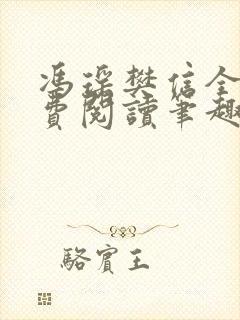 馮璨樊信全
費閱讀筆趣
駱賓王